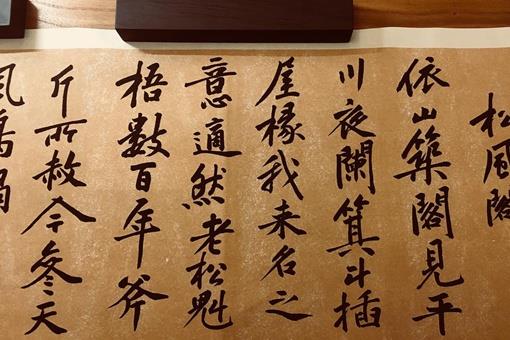 松風閣
依山築閣見平
川夜闌箕斗插
屋椽我來名之
意適然老松魁
梧數百年斧
斤所赦今參天
風鳴媧